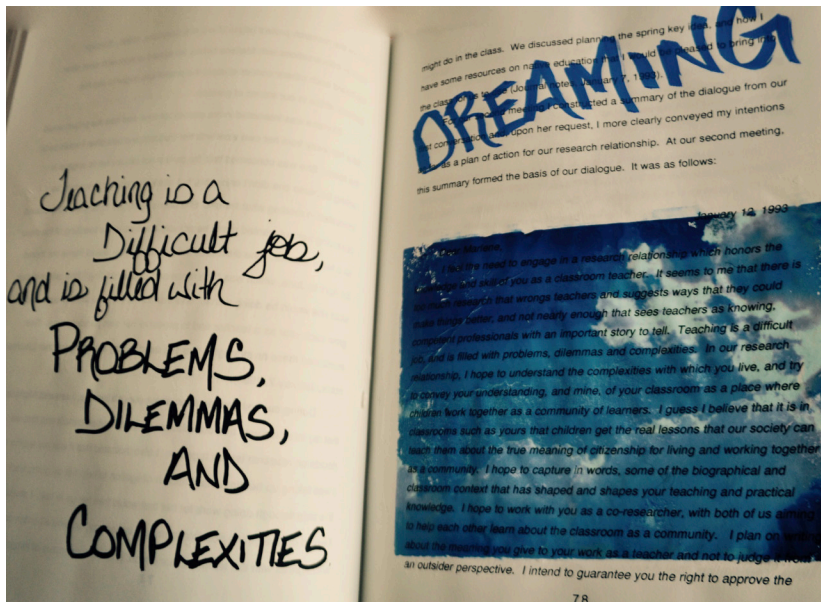 Teaching is a
Difficult job,
and is filled with
PROBLEMS,
DILEMMAS,
AND
COMPLEXITIES
DREAMING
might do in the class. We discussed planning the spring key idea, and how I
have some resources on native education that I would be pleased to bring into
the classroom to use (Journal notes, January 7, 1993).
meeting I constructed a summary of the dialogue from our
conversation and, upon her request, I more clearly conveyed my intentions
as a plan of action for our research relationship. At our second meeting,
this summary formed the basis of our dialogue. It was as follows:
January 12, 1993
Dear Marlene,
I feel the need to engage in a research relationship which honors the
knowledge and skill of you as a classroom teacher. It seems to me that there is
too much research that wrongs teachers and suggests ways that they could
make things better, and not nearly enough that sees teachers as knowing,
competent professionals with an important story to tell. Teaching is a difficult
job, and is filled with problems, dilemmas and complexities. In our research
relationship, I hope to understand the complexities with which you live, and try
to convey your understanding, and mine, of your classroom as a place where
children work together as a community of learners. I guess I believe that it is in
classrooms such as yours that children get the real lessons that our society can
teach them about the true meaning of citizenship for living and working together
as a community. I hope to capture in words, some of the biographical and
classroom context that has shaped and shapes your teaching and practical
knowledge. I hope to work with you as a co-researcher, with both of us aiming
to help each other learn about the classroom as a community. I plan on writing
about the meaning you give to your work as a teacher and not to judge it from
an outsider perspective. I intend to guarantee you the right to approve the
78